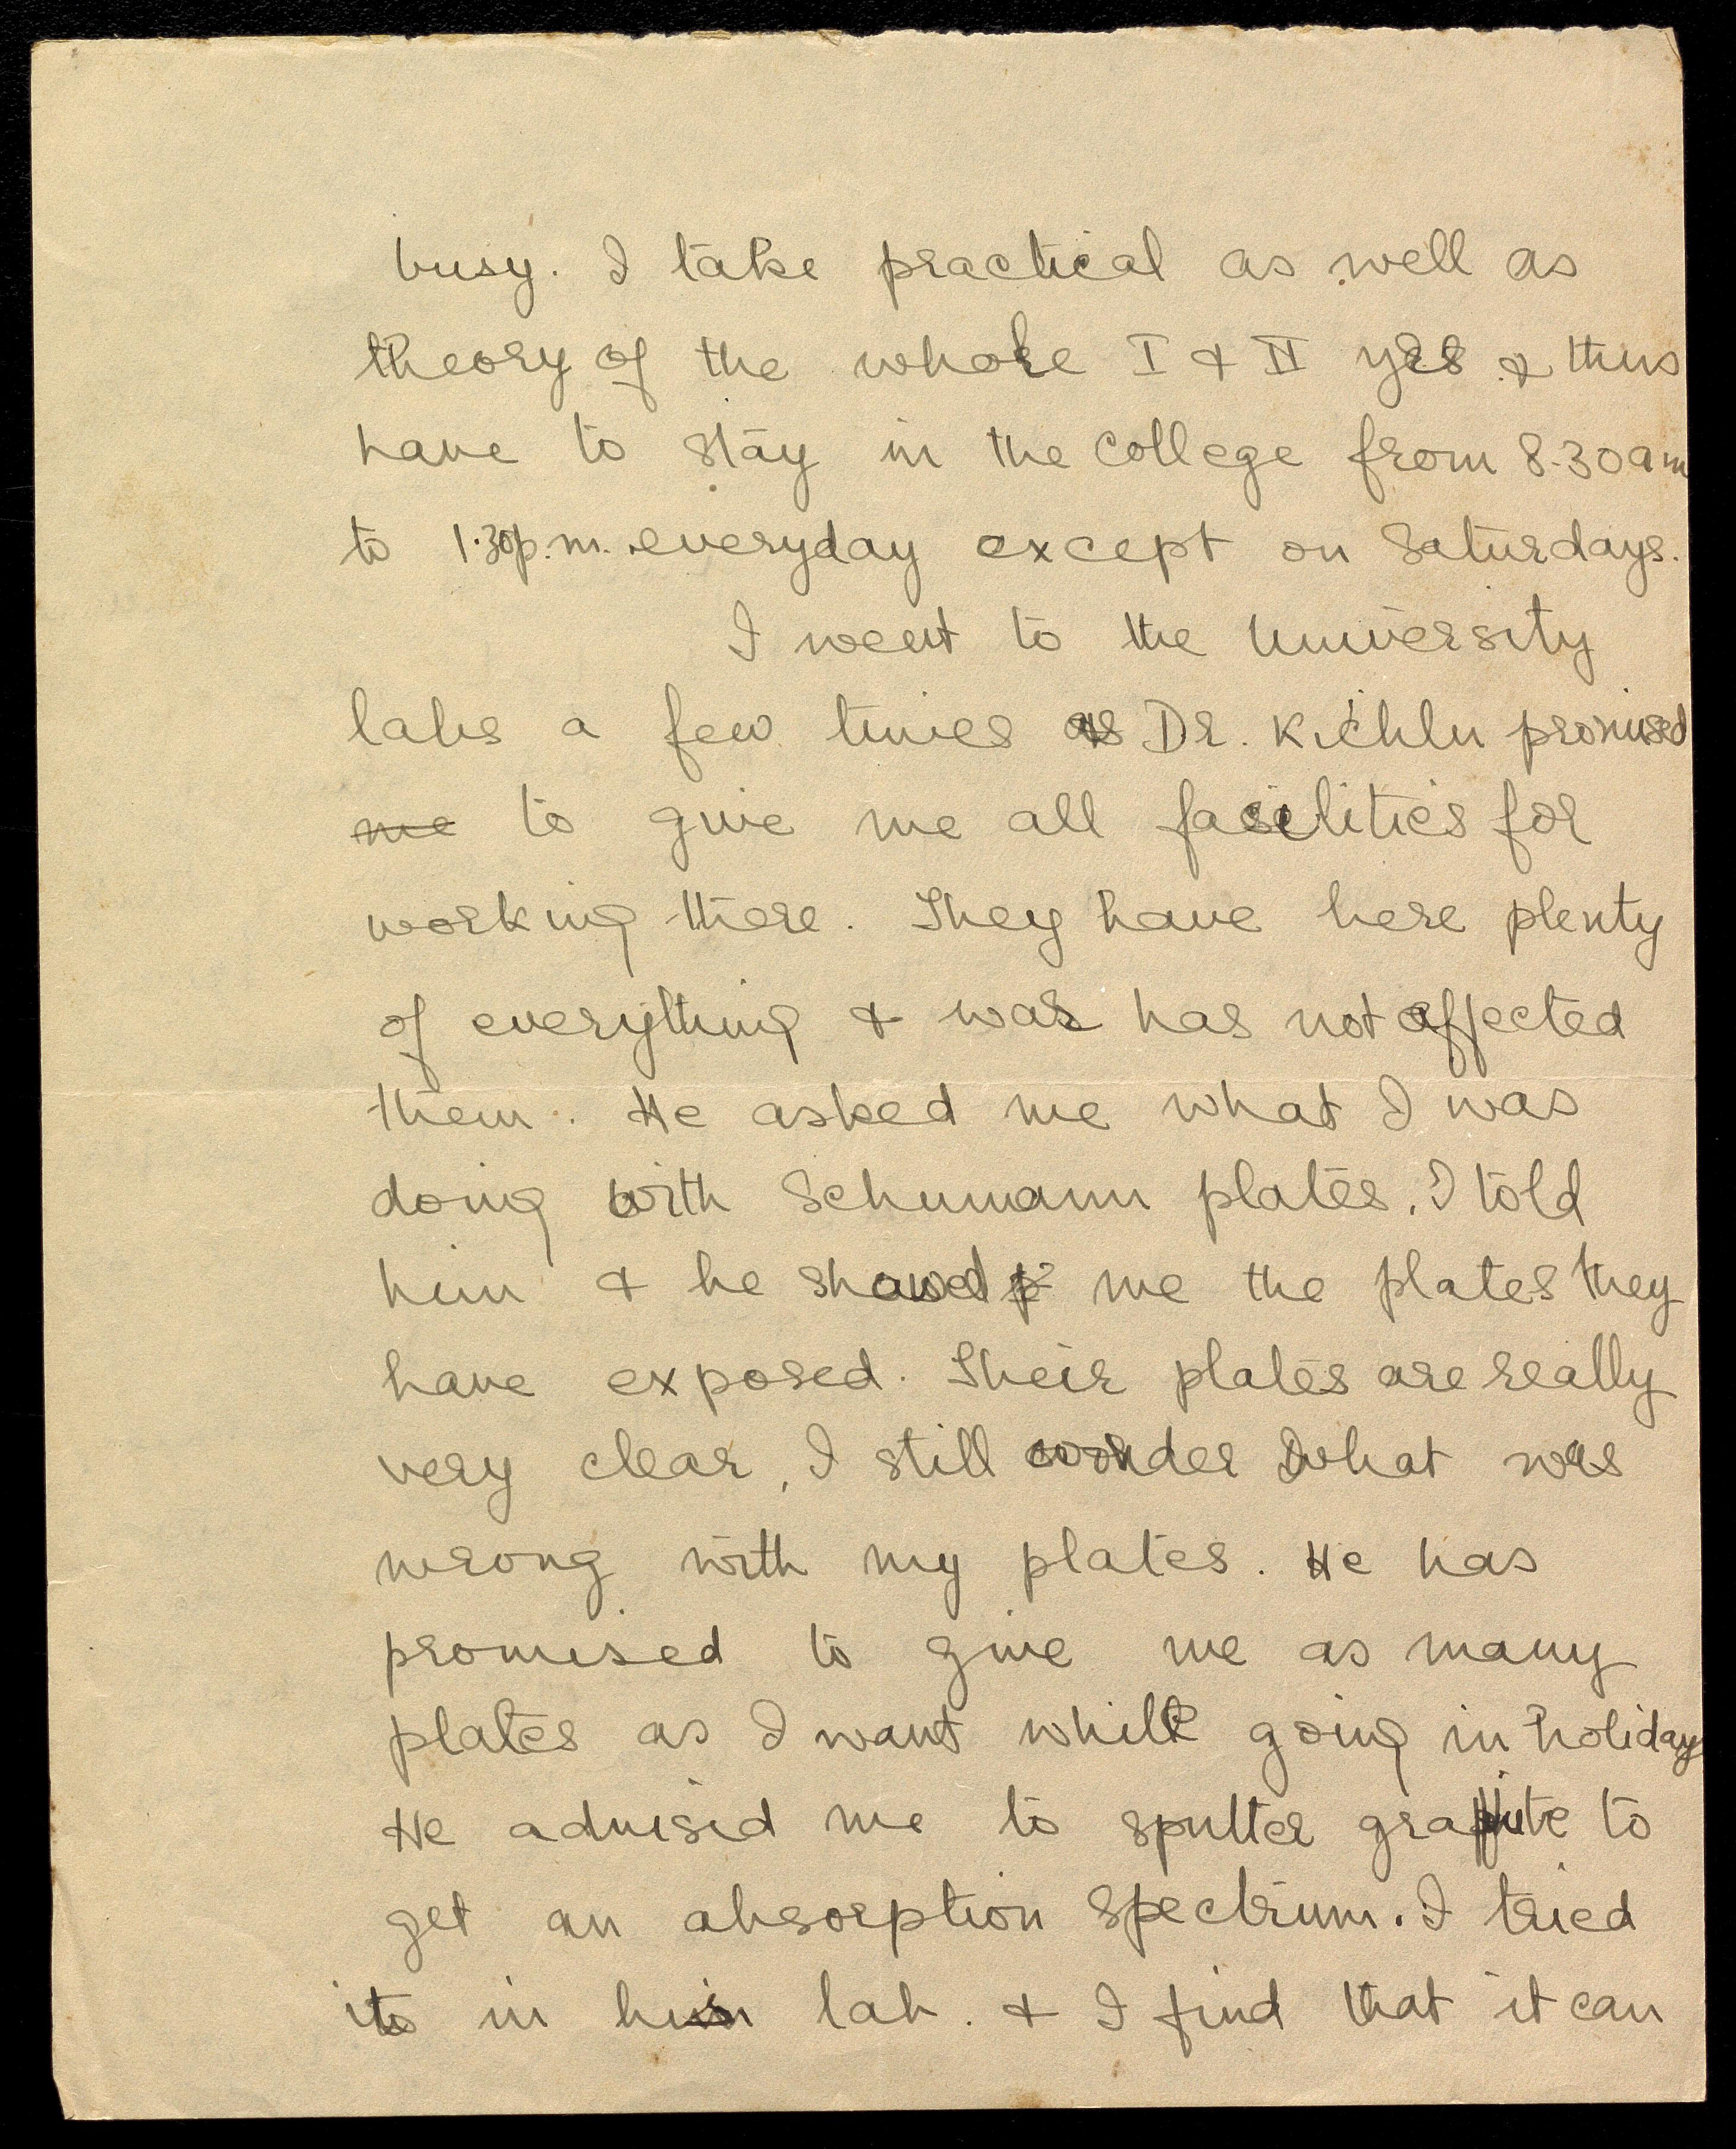 busy. I take practical as well as
theory of the whole I & II yrs & thus
have to stay in the college from 8.30 am
to 1.30 p.m. everyday except on Saturdays.
I went to the University
labs a few times as Dr. Kichlu promised
me to give me all facilities for
working there. They have here plenty
of everything & war has not affected
them. He asked me what I was
doing with Schumann plates. I told
him & he showed me the plates they
have exposed. Their plates are really
very clear, I still wonder what was
wrong with my plates. He has
promised to give me as many
plates as I want while going in holidays
He advised me to sputter graphite to
get an absorption spectrum. I tried
it in his lab. & I find that it can